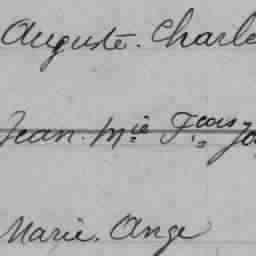 Auguste. Charle
Jean. Mie Fcois Jo
Marie. Ange